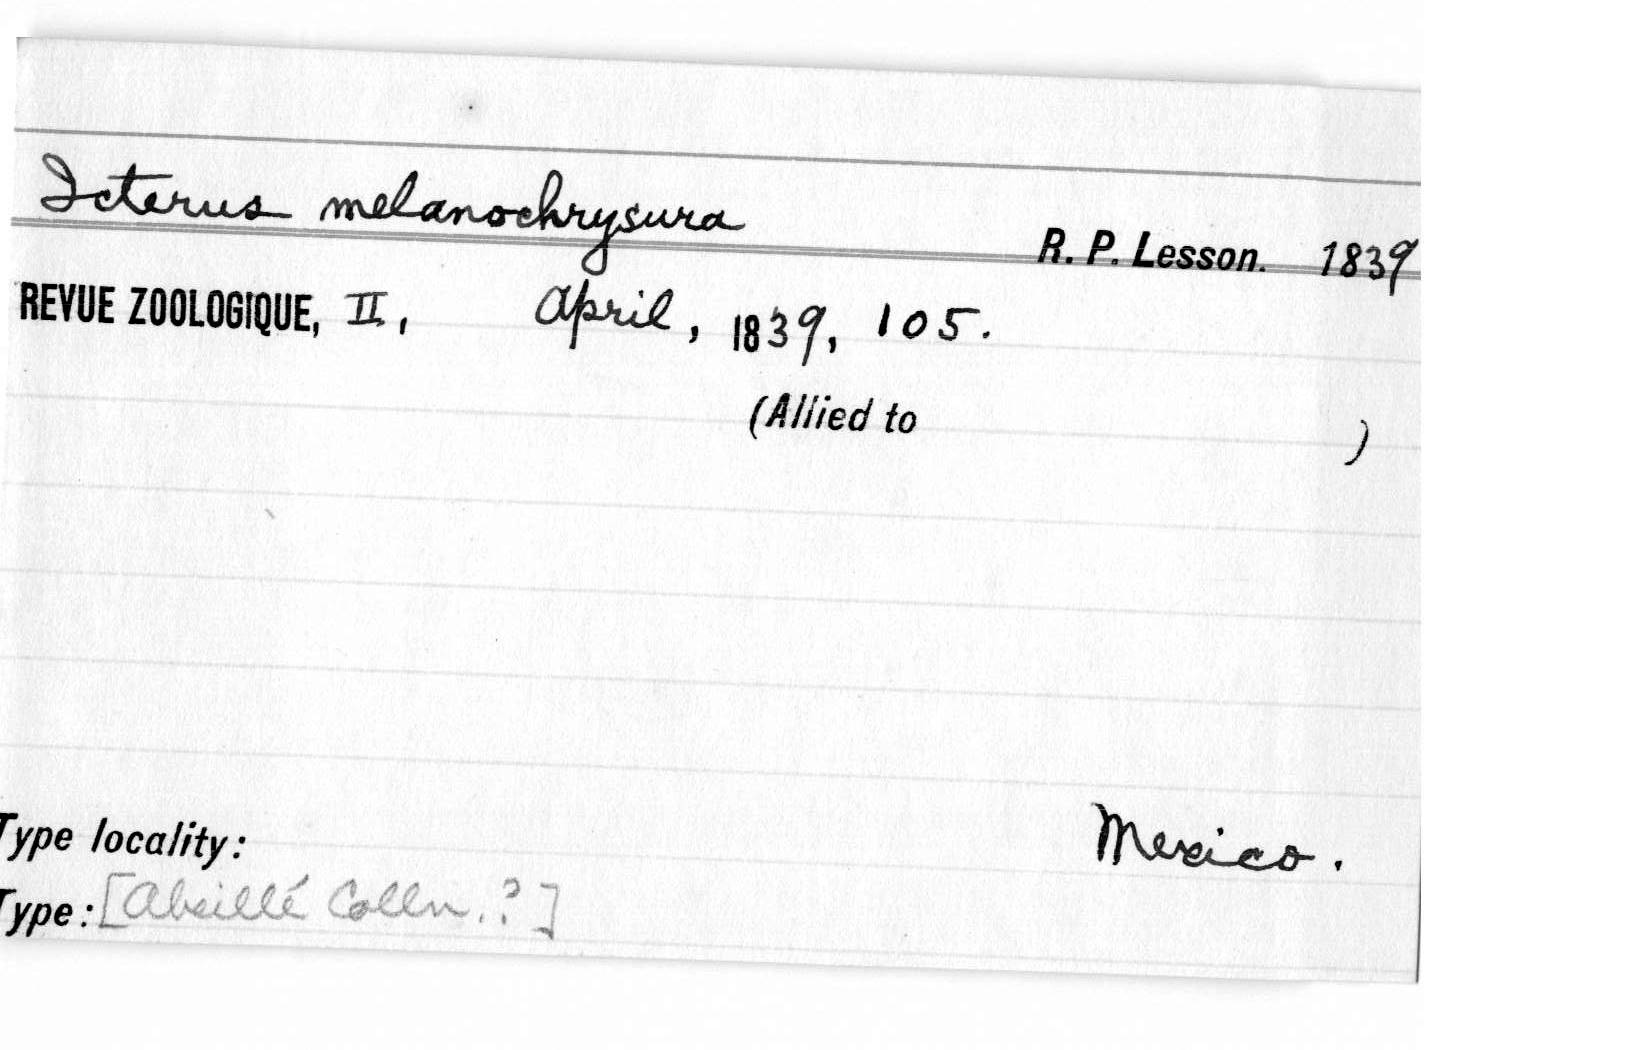 Icterus melanochrysura
R. P. Lesson. 1839
REVUE ZOOLOGIQUE, II, April, 1839, 105.
(Allied to )
Type locality: Mexico.
Type: [Abeillé Colln.?]